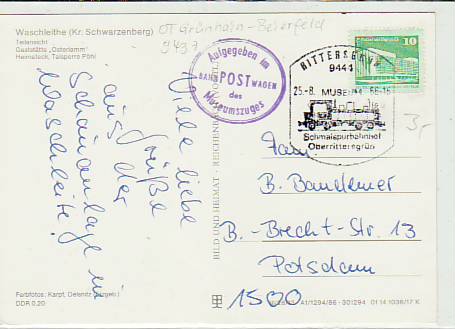 Waschleithe (Kr. Schwarzenberg)
Teilansicht
Gaststätte „Osterlamm"
Heimateck, Talsperre Pöhl
OT Grünhain-Beierfeld
Aufgegeben im
BAHNPOSTWAGEN
des
Museumszuges
RITTERSGRÜN
9441
25.-8. MUSEUM
Schmalspurbahnhof
Oberrittersgrün
10
Viele liebe
Grüße
aus der
Schauanlage in
Waschleite!
Fam.
B. Bandemer
B.-Brecht-Str. 13
Potsdam
1500
BILD UND HEIMAT · REICHENBACH
Farbfotos: Karpf, Oelsnitz (Erzgeb.)
DDR 0,20
A1/1294/86 · 301294 01 14 1036/17 K